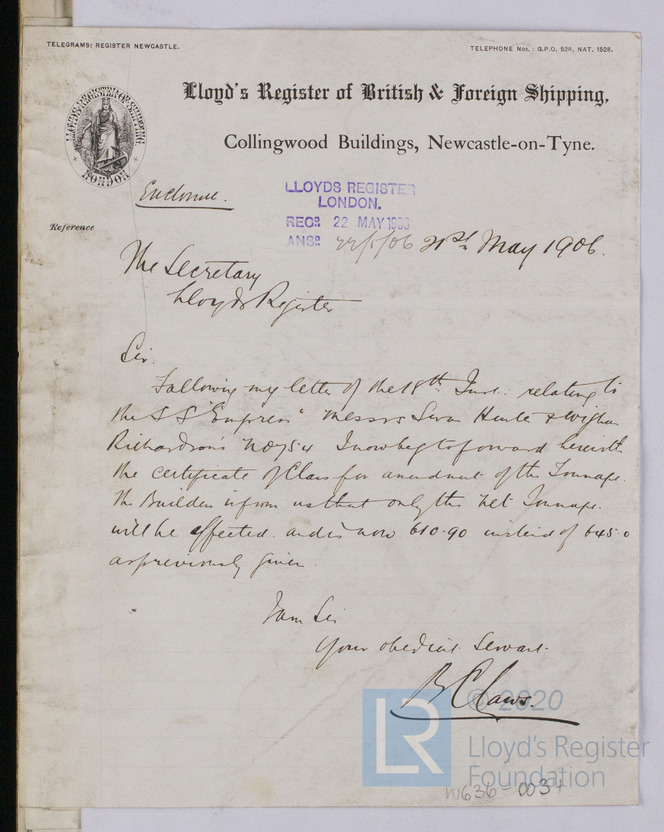 TELEGRAMS: REGISTER NEWCASTLE.
TELEPHONE Nos.: G.P.O. 528, NAT. 1528.
LLOYD'S REGISTER OF SHIPPING
LONDON
Lloyd's Register of British & Foreign Shipping,
Collingwood Buildings, Newcastle-on-Tyne.
Enclosure.
LLOYDS REGISTER
LONDON.
RECD 22 MAY 1906
ANSD 22/5/06
Reference
21st May 1906.
The Secretary
Lloyds Register
Sir.
Following my letter of the 18th Inst. relating to
the SS "Empress" Messrs Swan Hunter & Wigham
Richardson's No 754 I now beg to forward herewith
the certificate of Class for amendment of the Tonnage.
The Builders inform us that only the Net Tonnage.
will be affected. and is now 610.90 instead of 645.0
as previously given.
I am Sir
Your obedient Servant.
R C Laws.
© 2020
LR
Lloyd's Register
Foundation
W636-0034